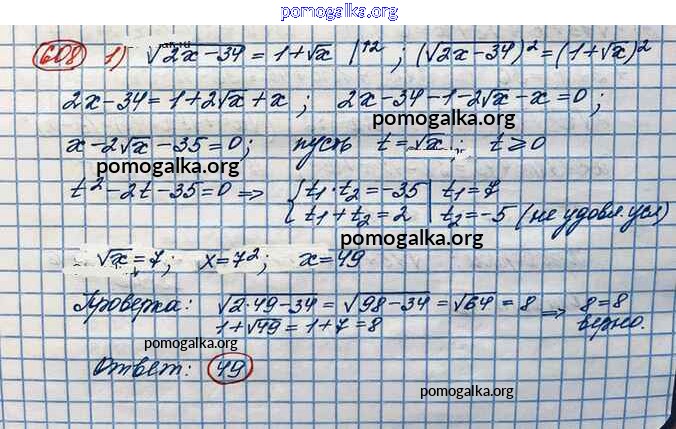 pomogalka.org
608 1) √2x-34 = 1+√x |↑2 ; (√2x-34)² = (1+√x)²
2x-34=1+2√x+x ; 2x-34-1-2√x-x=0 ;
pomogalka.org
x-2√x-35=0; пусть t=√x ; t≥0
pomogalka.org
t²-2t-35=0 => { t₁·t₂=-35 | t₁=7
t₁+t₂=2 | t₂=-5 (не удовл усл)
pomogalka.org
√x=7; x=7²; x=49
Проверка: √2·49-34 = √98-34 = √64 = 8 => 8=8
1+√49 = 1+7=8 верно.
pomogalka.org
Ответ: 49
pomogalka.org